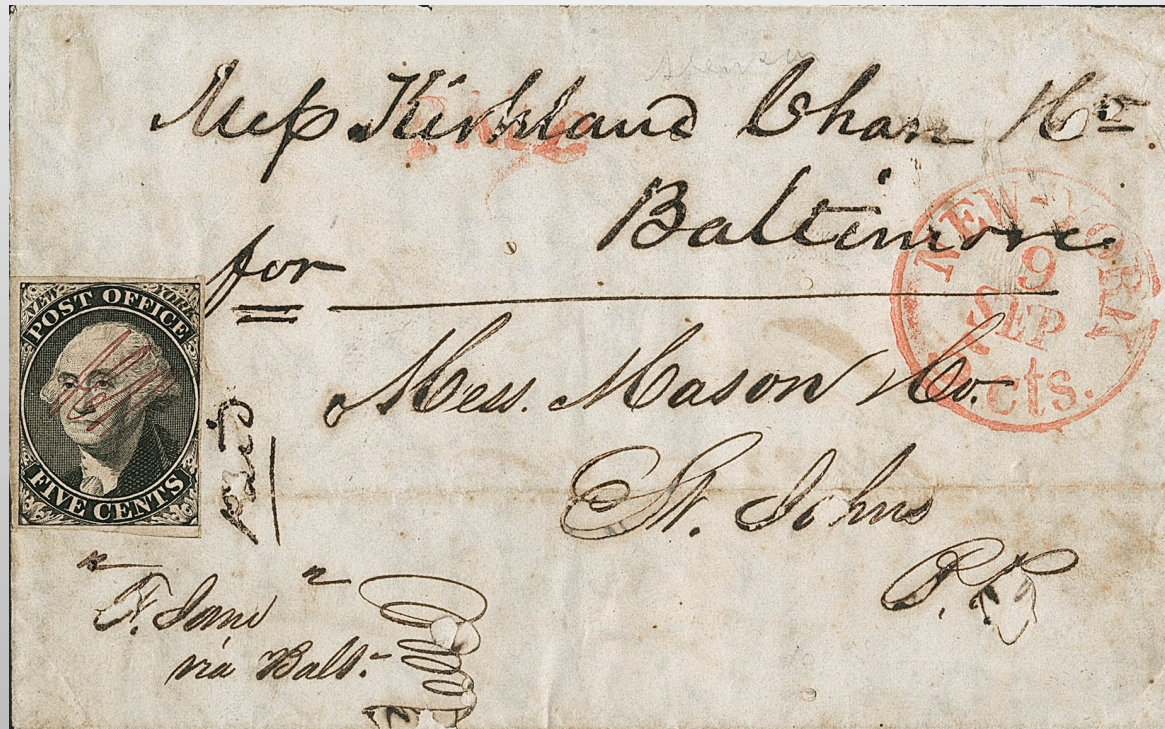 Mess Kirkland Chase & Co
PAID
Baltimore
for
NEW-YORK
9
SEP
cts.
NEW YORK
POST OFFICE
FIVE CENTS
paid
Mess. Mason & Co.
St. Johns
P. R.
"F. Jane"
via Balt.